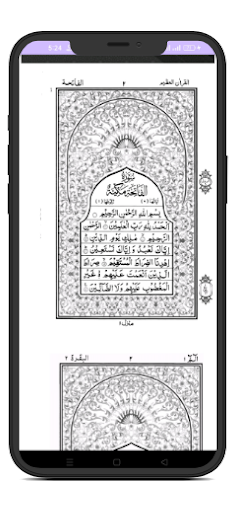 5:24
القرآن العظيم ٢ الفاتحة
١
سورة
الفاتحة مكية
بسم الله الرحمن الرحيم
الحمد لله رب العالمين الرحمن
الرحيم ملك يوم الدين
إياك نعبد وإياك نستعين
اهدنا الصراط المستقيم صراط
الذين أنعمت عليهم غير
المغضوب عليهم ولا الضالين
منزل ١
الٓمٓ ١ ٣ البقرة ٢